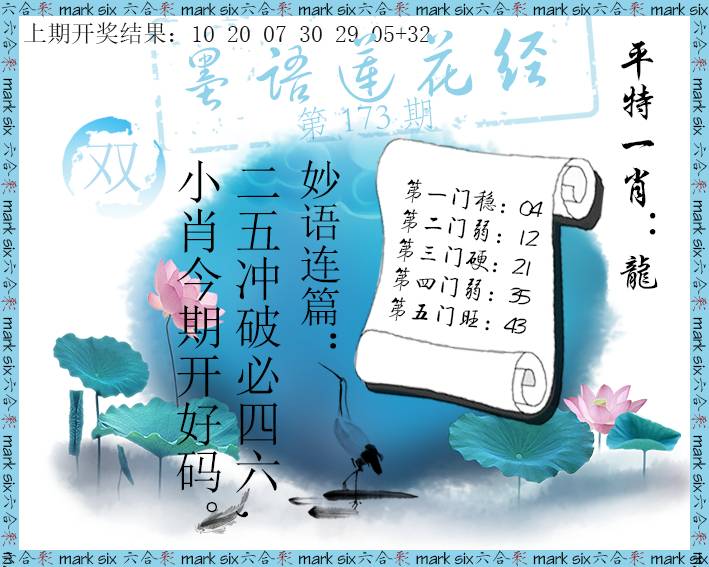 上期开奖结果：10 20 07 30 29 05+32
墨语莲花经
第 173 期
双
平特一肖：龍
第一门稳：04
第二门弱：12
第三门硬：21
第四门弱：35
第五门旺：43
妙语连篇：
二五冲破必四六、
小肖今期开好码。
六合彩 mark six 六合彩 mark six 六合彩 mark six 六合彩 mark six 六合彩 mark six